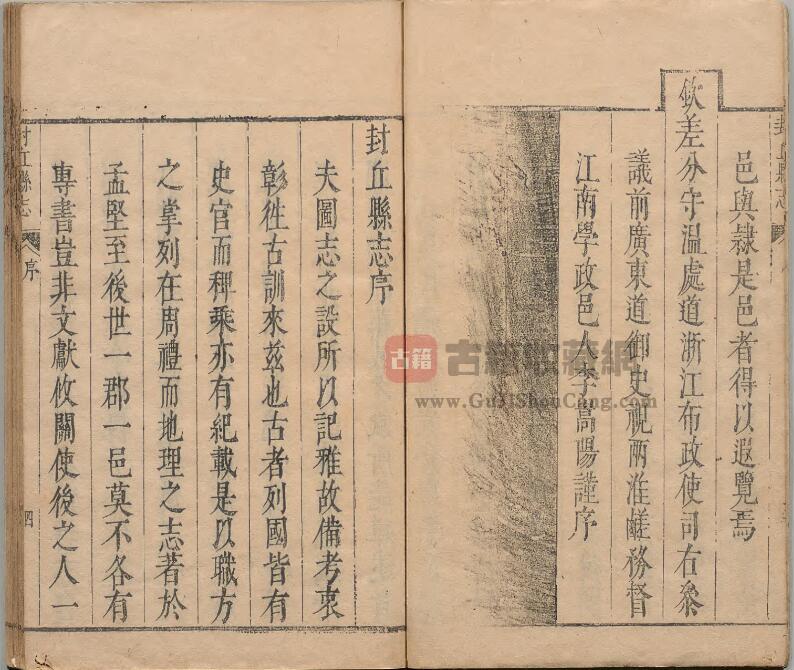 邑與隸是邑者得以遐覽焉
欽差分守温處道浙江布政使司右叅
議前廣東道御史視兩淮鹺務督
江南學政邑人李嵩陽謹序
封丘縣志序
夫圖志之設所以記雅故備考衷
彰徃古訓來兹也古者列國皆有
史官而稗乘亦有紀載是以職方
之掌列在周禮而地理之志著於
孟堅至後世一郡一邑莫不各有
專書豈非文獻攸關使後之人一
封丘縣志
序
四
封丘縣志
古籍
古籍收藏網
www.GuJiShouCang.com